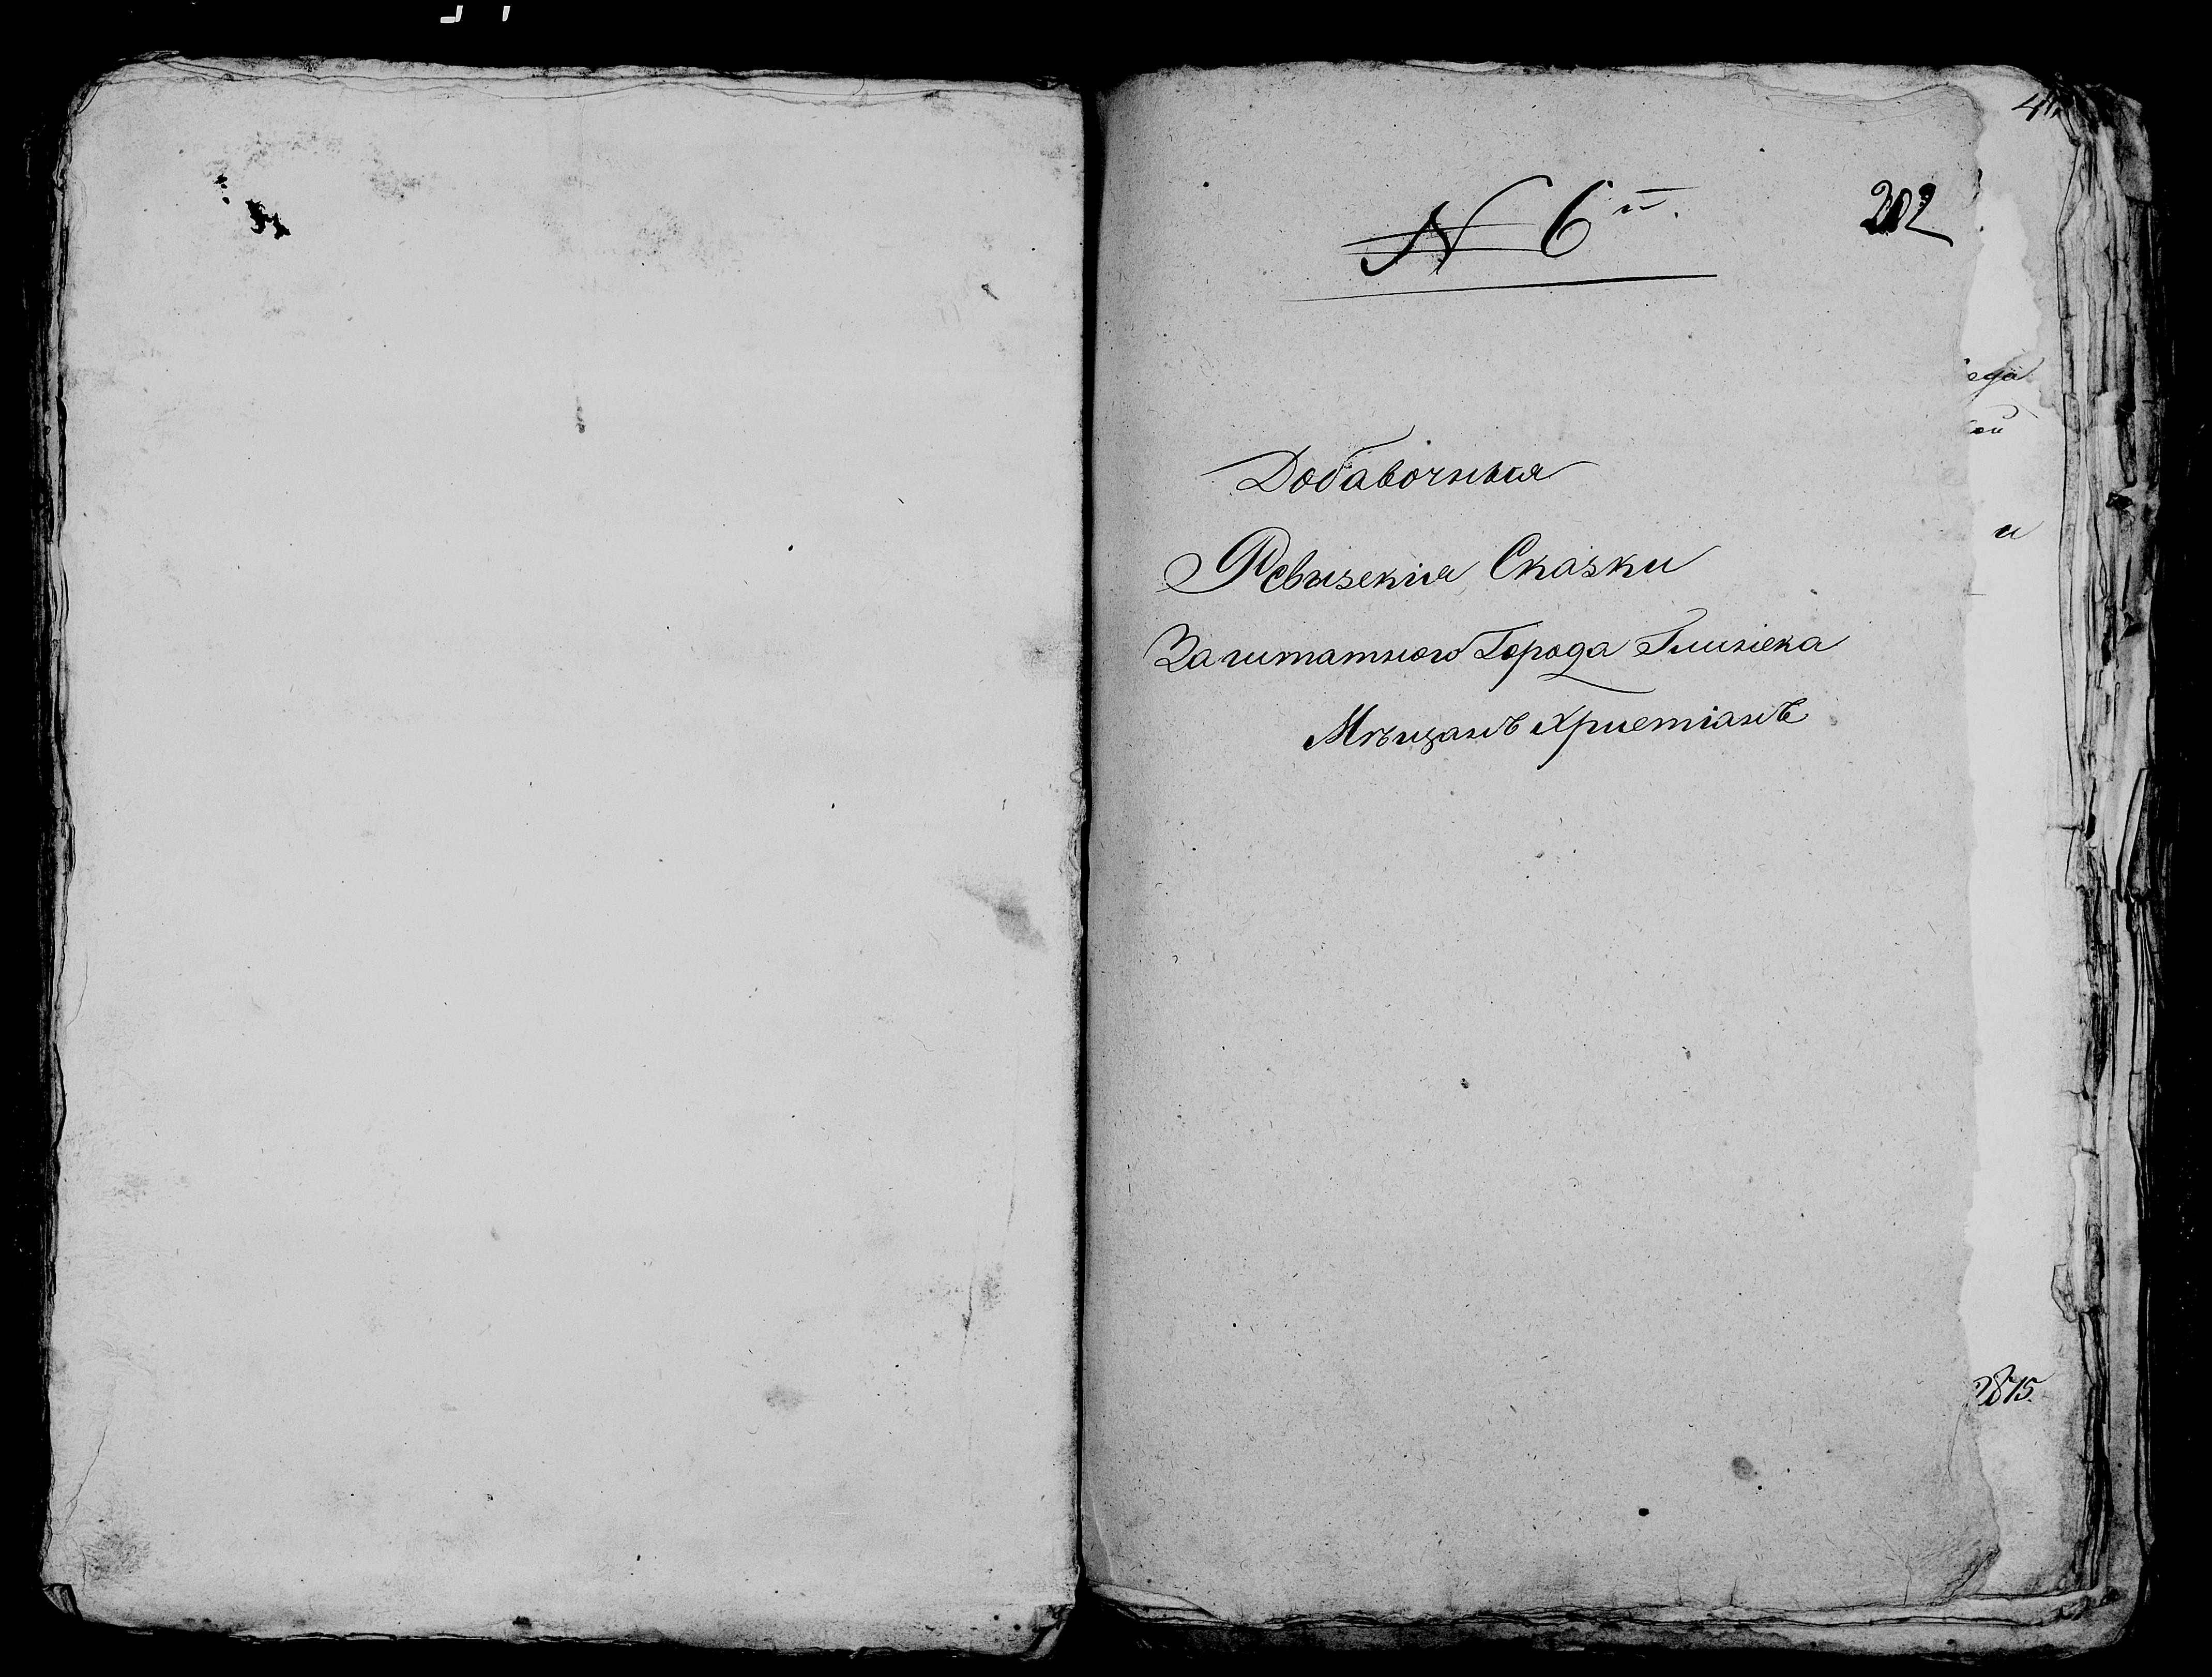 N 6й.
202
Добавочныя
Ревизскія Сказки
Заштатного Города Глинска
Мѣщанъ Христіанъ
и
2875.